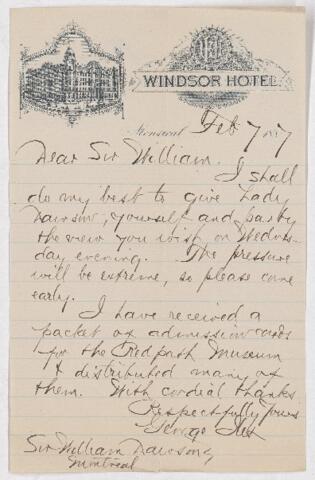 WINDSOR HOTEL
Montreal Feb 7 1887
Dear Sir William.
I shall
do my best to give Lady
Dawson, yourself and party
the view you wish on Wednes-
day evening. The pressure
will be extreme, so please come
early.
I have received a
packet of admission cards
for the Redpath Museum
& distributed many of
them. With cordial thanks
Respectfully Yours
George Iles
Sir William Dawson,
Montreal